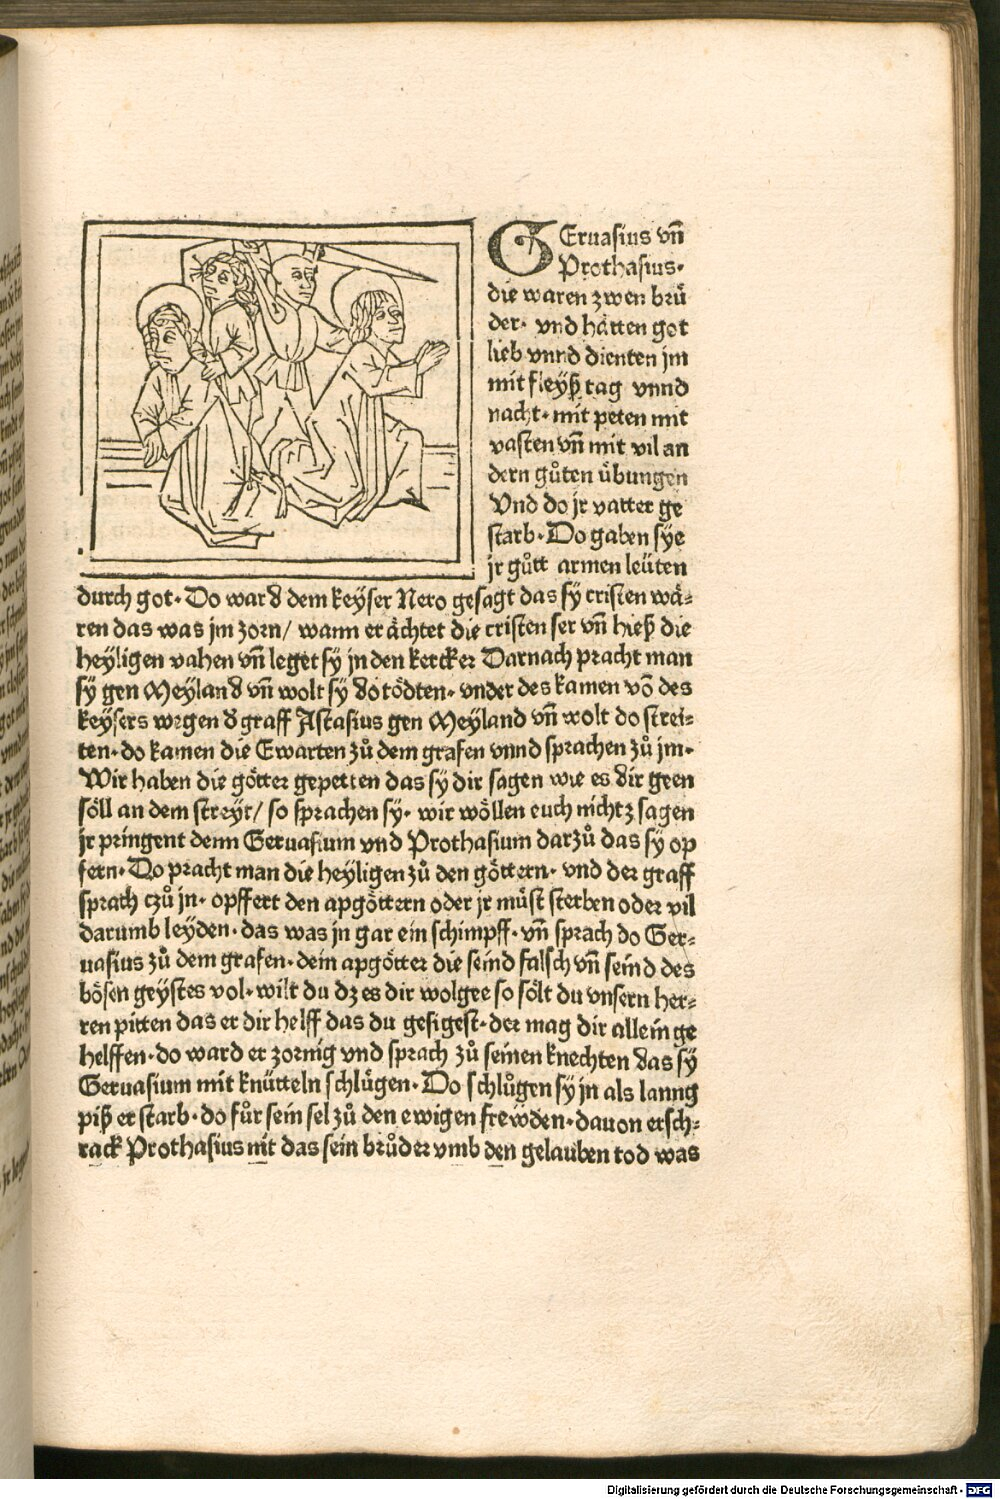 GEruasius vn̄
Prothasius·
die waren zwen brů
der· vnd hȧtten got
lieb vnnd dienten jm
mit fleyß tag vnnd
nacht· mit peten mit
vasten vn̄ mit vil an
dern gůten übungen
Vnd do jr vatter ge
starb· Do gaben sye
jr gůtt armen leüten
durch got· Do ward dem keyser Nero gesagt das sy cristen wȧ⸗
ren das was jm zorn/ wann er ȧchtet die cristen ser vn̄ hieß die
heyligen vahen vn̄ leget sy jn den kercker Darnach pracht man
sy gen Meyland vn̄ wolt sy do tödten· vnder des kamen vō des
keysers wegen d graff Astasius gen Meyland vn̄ wolt do strei⸗
ten· do kamen die Ewarten zů dem grafen vnnd sprachen zů jm·
Wir haben die götter gepetten das sy dir sagen wie es dir geen
söll an dem streyt/ so sprachen sy· wir wöllen euch nichtz sagen
jr pringent denn Geruasium vnd Prothasium darzů das sy op
fern· Do pracht man die heyligen zů den göttern· vnd der graff
sprach czů jn· opffert den apgöttern oder jr müst sterben oder vil
darumb leyden· das was jn gar ein schimpff· vn̄ sprach do Ger⸗
uasius zů dem grafen· dein apgötter die seind falsch vn̄ seind des
bösen geystes vol· wilt du dz es dir wolgee so sölt du vnsern her⸗
ren pitten das er dir helff das du gesigest· der mag dir allein ge
helffen· do ward er zornig vnd sprach zů seinen knechten das sy
Geruasium mit knütteln schlügen· Do schlůgen sy jn als lanng
piß er starb· do fůr sein sel zů den ewigen frewden· dauon ersch⸗
rack Prothasius nit das sein brůder vmb den gelauben tod was
Digitalisierung gefördert durch die Deutsche Forschungsgemeinschaft - DFG